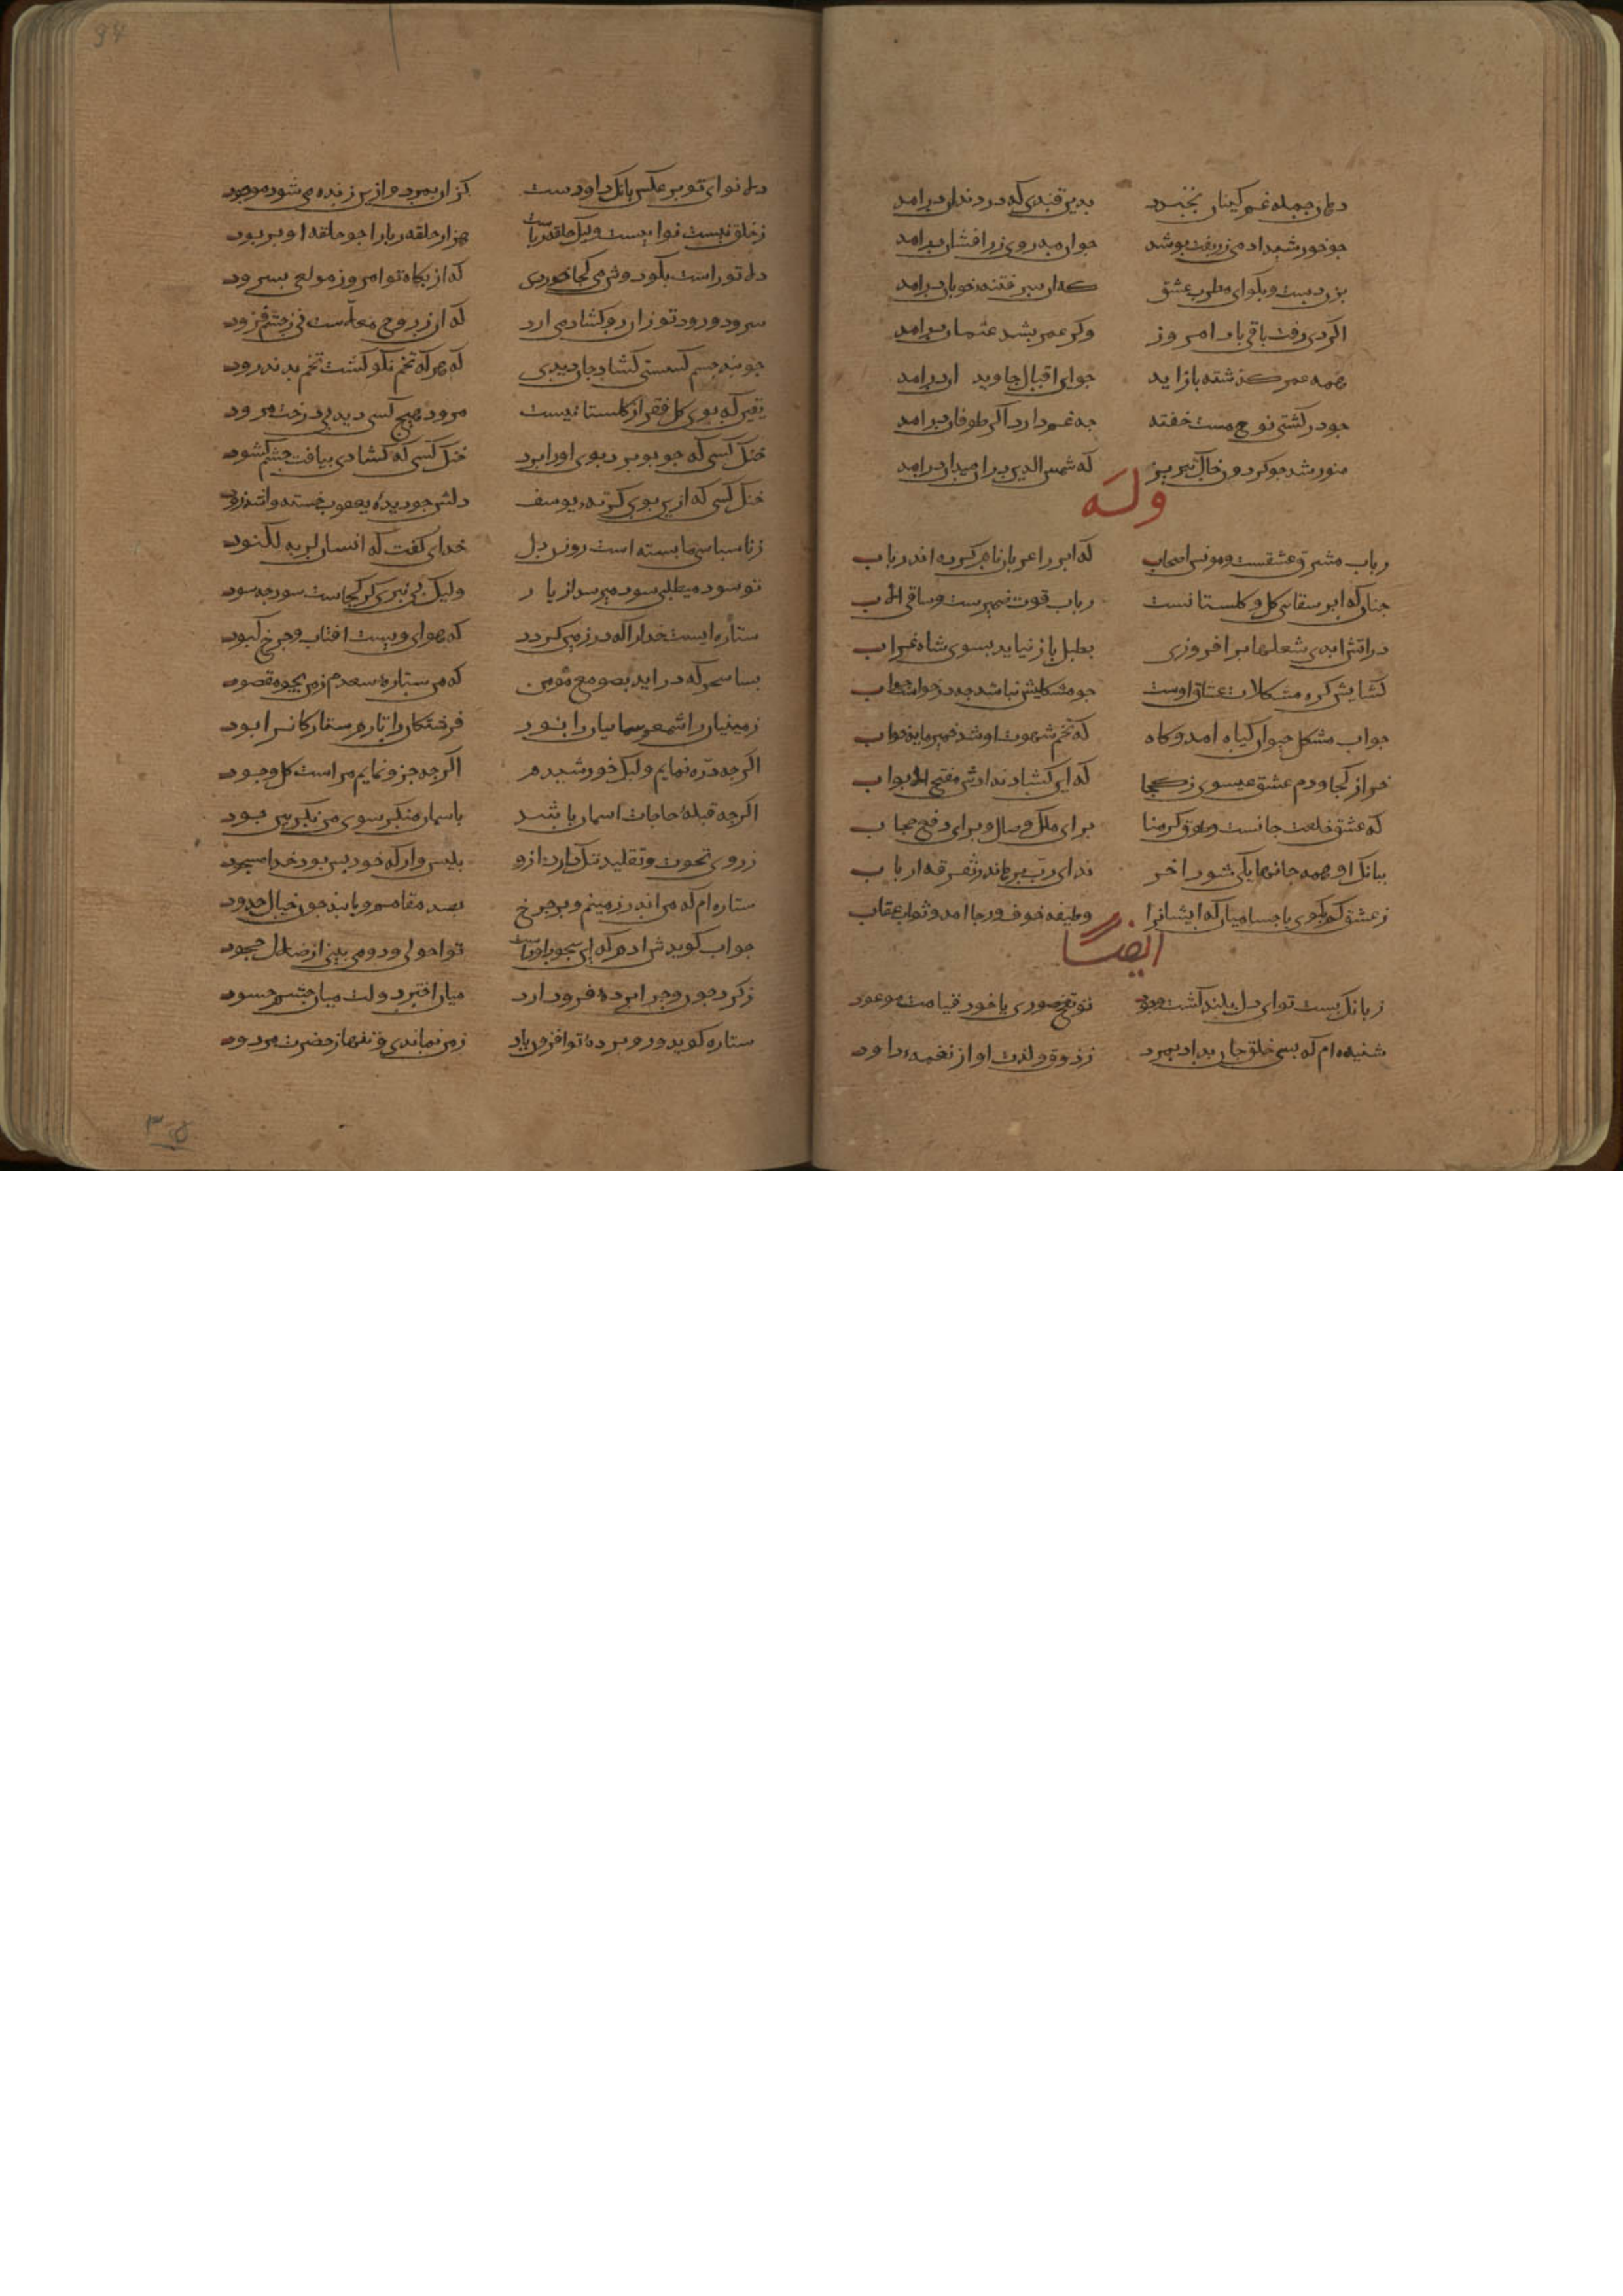 دهان جمله غم کینان بخنبد    بدین قندی که در دندان برامد
جو خورشید ادمی زربفت بوشد    جو ان مه روی زرافشان برامد
بزن دست و بکو ای مطرب عشق    که ان سر فتنهٔ خوبان برامد
اکر دی رفت باقی باد امروز    وکر عمر بشد عثمان برامد
همه عمر کذشته باز اید    جو این اقبال جاویدان برامد
جو در کشتی نوح مست خفته    جه غم دارد اکر طوفان برامد
منور شد جو کردون خاک تبریز    که شمس الدین در ان میدان برامد
وله
رباب مشرق عشقست و مونس اصحاب    که ابر را عربان نام کرده اند رباب
جنان که ابر سقای کل و کلستانست    رباب قوت ضمیرست و ساقی الباب
در اتش ابدی شعلها برافروزی    بطبل باز نیاید بسوی شاه غراب
کشایش کره مشکلات عشاق اوست    جو مشکلیش نباشد جه در خواست جواب
جواب مشکل حیوان کیاه امد و کاه    که تخم شهوت او شد خمیر مایهٔ خواب
خر از کجا و دم عشق عیسوی ز کجا    که این کشاد ندادش مفتح الابواب
که عشق خلعت جانست و طوق کرمنا    برای ملک وصال و برای دفع حجاب
ببانک او همه جانها بیکی شود اخر    ندای رب برهاند ز تفرقه ارباب
ز عشق کم بکوی با جسامیان که ایشانرا    وظیفه خوف و رجا امد و ثواب و عقاب
ایضا
ز بانک بست تو ای دل بلند کشت وجود    تو نفخ صوری یا خود قیامت موعود
شنیده ام که بسی خلق جان بداد بمرد    ز ذوق و لذت اواز نغمهٔ داود
دلم نوای تو بر عکس بانک داودست    کز ان بمرد و ازین زنده می شود موجود
ز خلق نیست نوایست ولیک حلقه رباست    هزار حلقه ربا را جو حلقه او بربود
دلم تو راست بکو دوش می کجا خوردی    که از بکاه تو امروز مولعی بسرود
سرود و رود تو زان رو کشاد می ارد    که ان ز روح معلاست نی ز جشم فزود
جو بند جسم کسستی کشاد جان دیدی    که هر که تخم نکو کشت تخم بد ندرود
یقین که بوی کل فقر از کلستانیست    مرود هیج کسی دید بی درخت مرود
خنک کسی که جو بو برد بوی او را برد    خنک کسی که کشادی بیافت جشم کشود
خنک کسی که ازین بوی کرتهٔ یوسف    دلش جو دیدهٔ یعقوب خسته واشد زود
ز ناسباسی ما بسته است روزن دل    خدای کفت که انسان لربه لکنود
تو سود میطلبی سود میرسد از یار    ولیک بی نبری کز کجاست سود جه سود
ستاره ایست خدا را که در زمین کردد    که در هوای ویست افتاب و جرخ کبود
بسا سحر که دراید بصومع مؤمن    که من ستارهٔ سعدم ز من بجوه مقصود
زمینیان را شمعم سماییان را نور    فرشتکان را بارم ستارکانرا بود
اکرجه ذره نمایم ولیک خورشیدم    اکرجه جزو نمایم مراست کل وجود
اکرجه قبلهٔ حاجات اسمان باشد    باسمان منکر سوی من نکر بین جود
ز روی نخوت و تقلید ننک دارد ازو    بلیس وار که خود بس بود خدا مسجود
ستاره ام که من اندر زمینم و بر جرخ    بصد مقامم یابند جون خیال خدود
جواب کویدش ادم که این سجود اوراست    تو احولی و دو می بینی از ضلال جحود
ز کرد جون و جرا برده فرود ارد    میان اختر دولت میان جشم حسود
ستاره کوید رو بردهٔ تو افزون باد    ز من نماندی تنها ز حضرتت مردود